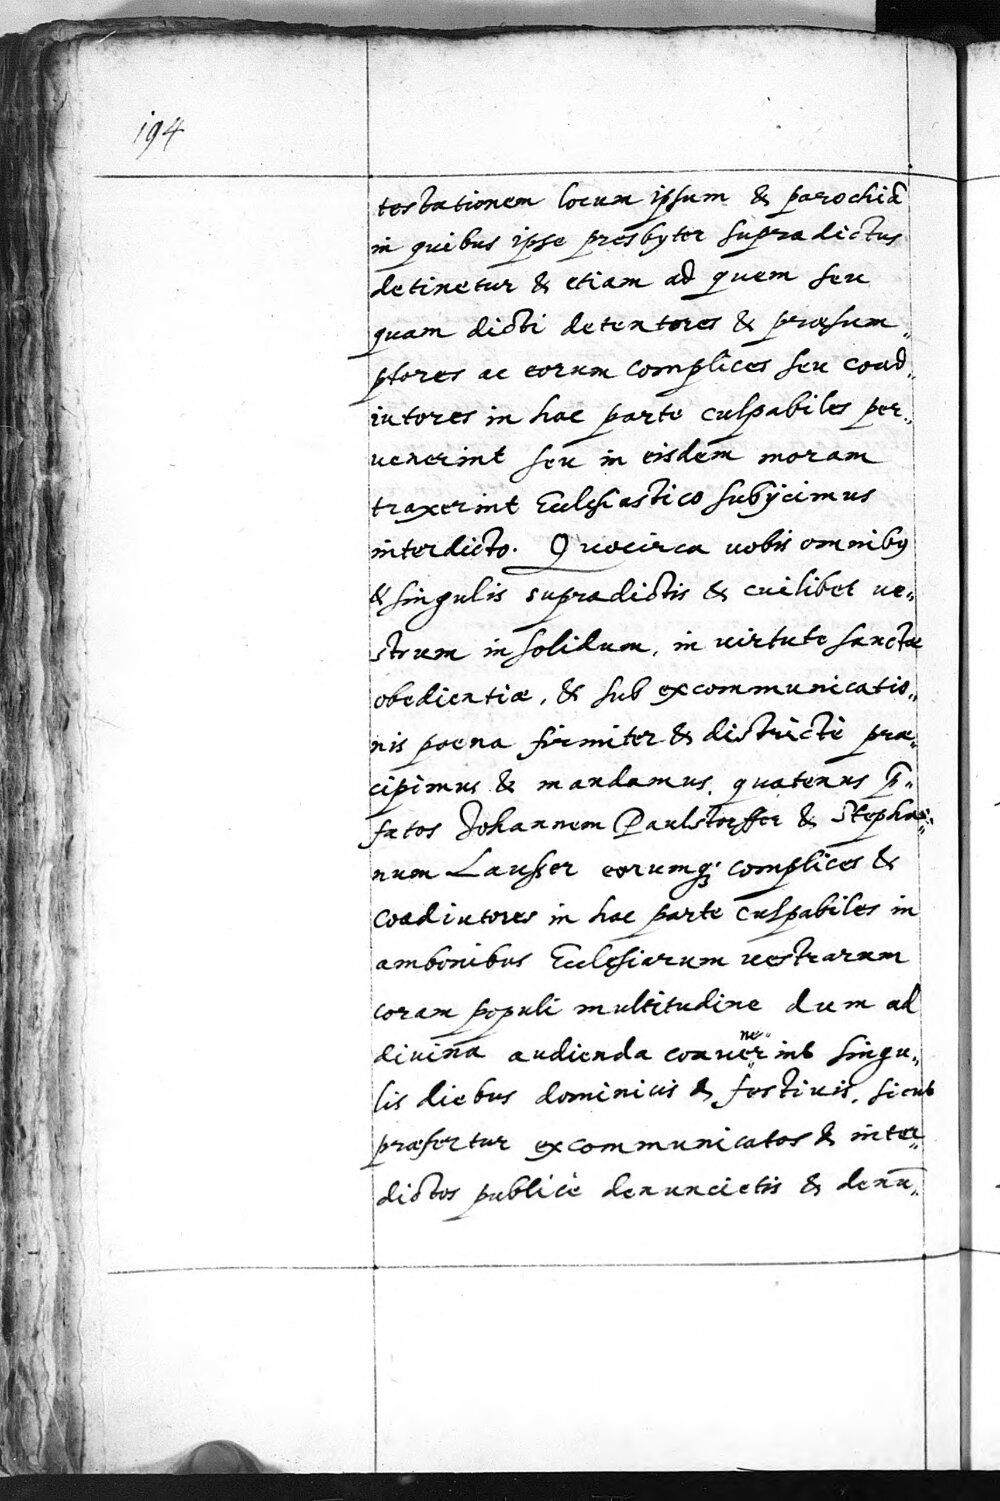 194
testationem locum ipsum & parochiā
in quibus ipse presbyter supradictus
detinetur & etiam ad quem seu
quam dicti detentores & præsum„
ptores ac eorum complices seu coad„
iutores in hac parte culpabiles per„
uenerint seu in eisdem moram
traxerint Ecclesiastico subijcimus
interdicto. Quocirca uobis omnibꝰ
& singulis supradictis & cuilibet ue„
strum in solidum, in uirtute sanctæ
obedientiæ, & sub excommunicatio„
nis poena firmiter & districtè præ„
cipimus & mandamus, quatenus p̄„
fatos Johannem Paulstorffer & Stepha„
num Lausser eorumq; complices &
coadiutores in hac parte culpabiles in
ambonibus Ecclesiarum uestrarum
coram populi multitudine dum ad
diuina audienda conuenerint singu„
lis diebus dominicis & festiuis, sicut
præfertur excommunicatos & inter„
dictos publicè denuncietis & denū„